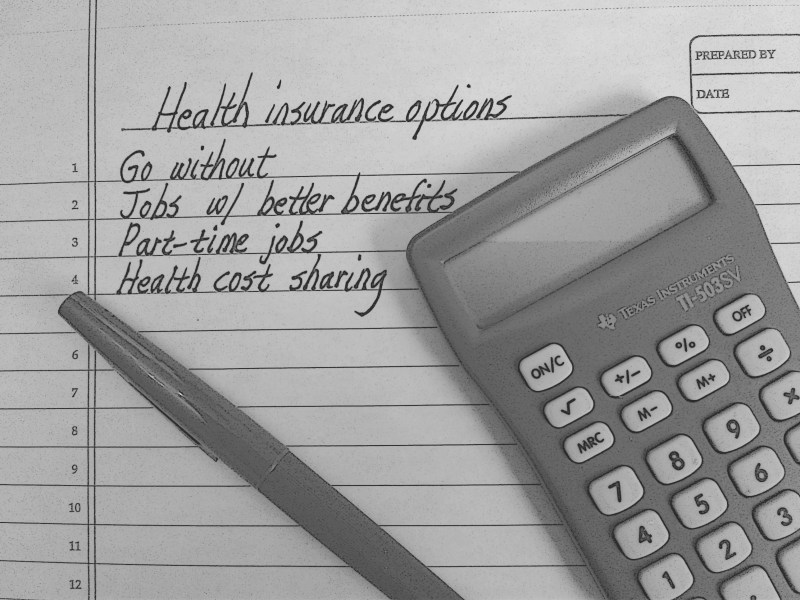 PREPARED BY
DATE
Health insurance options
1 Go without
2 Jobs w/ better benefits
3 Part-time jobs
4 Health cost sharing
6
7
8
9
10
11
12
TEXAS INSTRUMENTS
TI-503SV
ON/C +/- % OFF
√ M- M+ ÷
MRC 7 8 9 ×
4 5 6
1 2 3